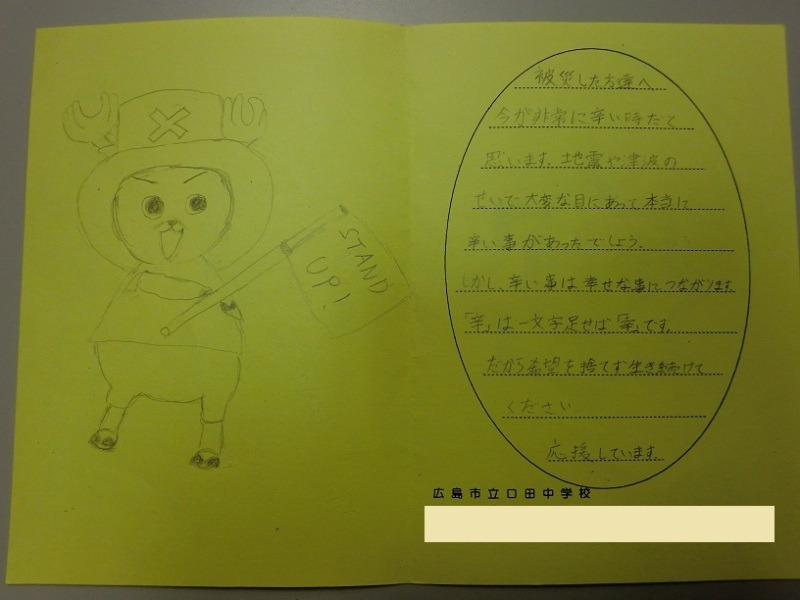 STAND
UP!
被災した方達へ
今が非常に辛い時だと
思います。地震や津波の
せいで大変な目にあって本当に
辛い事があったでしょう。
しかし、辛い事は幸せな事につながります
「辛」は一文字足せば「幸」です。
だから希望を捨てず生き続けて
ください
応援しています。
広島市立口田中学校